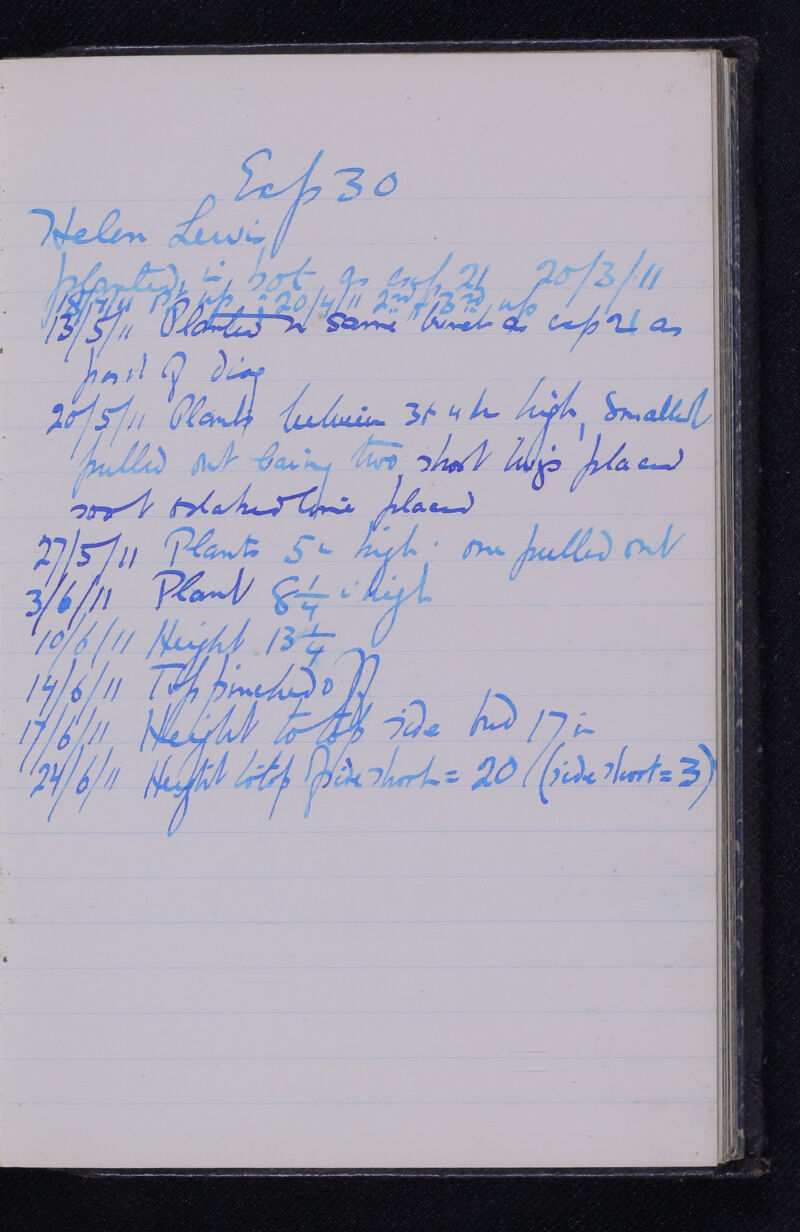 Exp 30
Helen Lewis
planted in pot as exp. 21 20/3/11
18/4/11 1st up : 20/4/11 2nd + 3rd up
13/5/11 Planted in same as exp 21 as
posn of diag
20/5/11 Plants between 3 + 4 in high, Smallest
pulled out leaving two short twigs placed
soot + slaked lime placed
27/5/11 Plants 5 in high. one pulled out
3/6/11 Plant 8 1/4 in high
10/6/11 Height 13 1/4
14/6/11 Top pinched off
17/6/11 Height to top side bud 17 in
24/6/11 Height to top of side shoot = 20 (side shoot = 3)